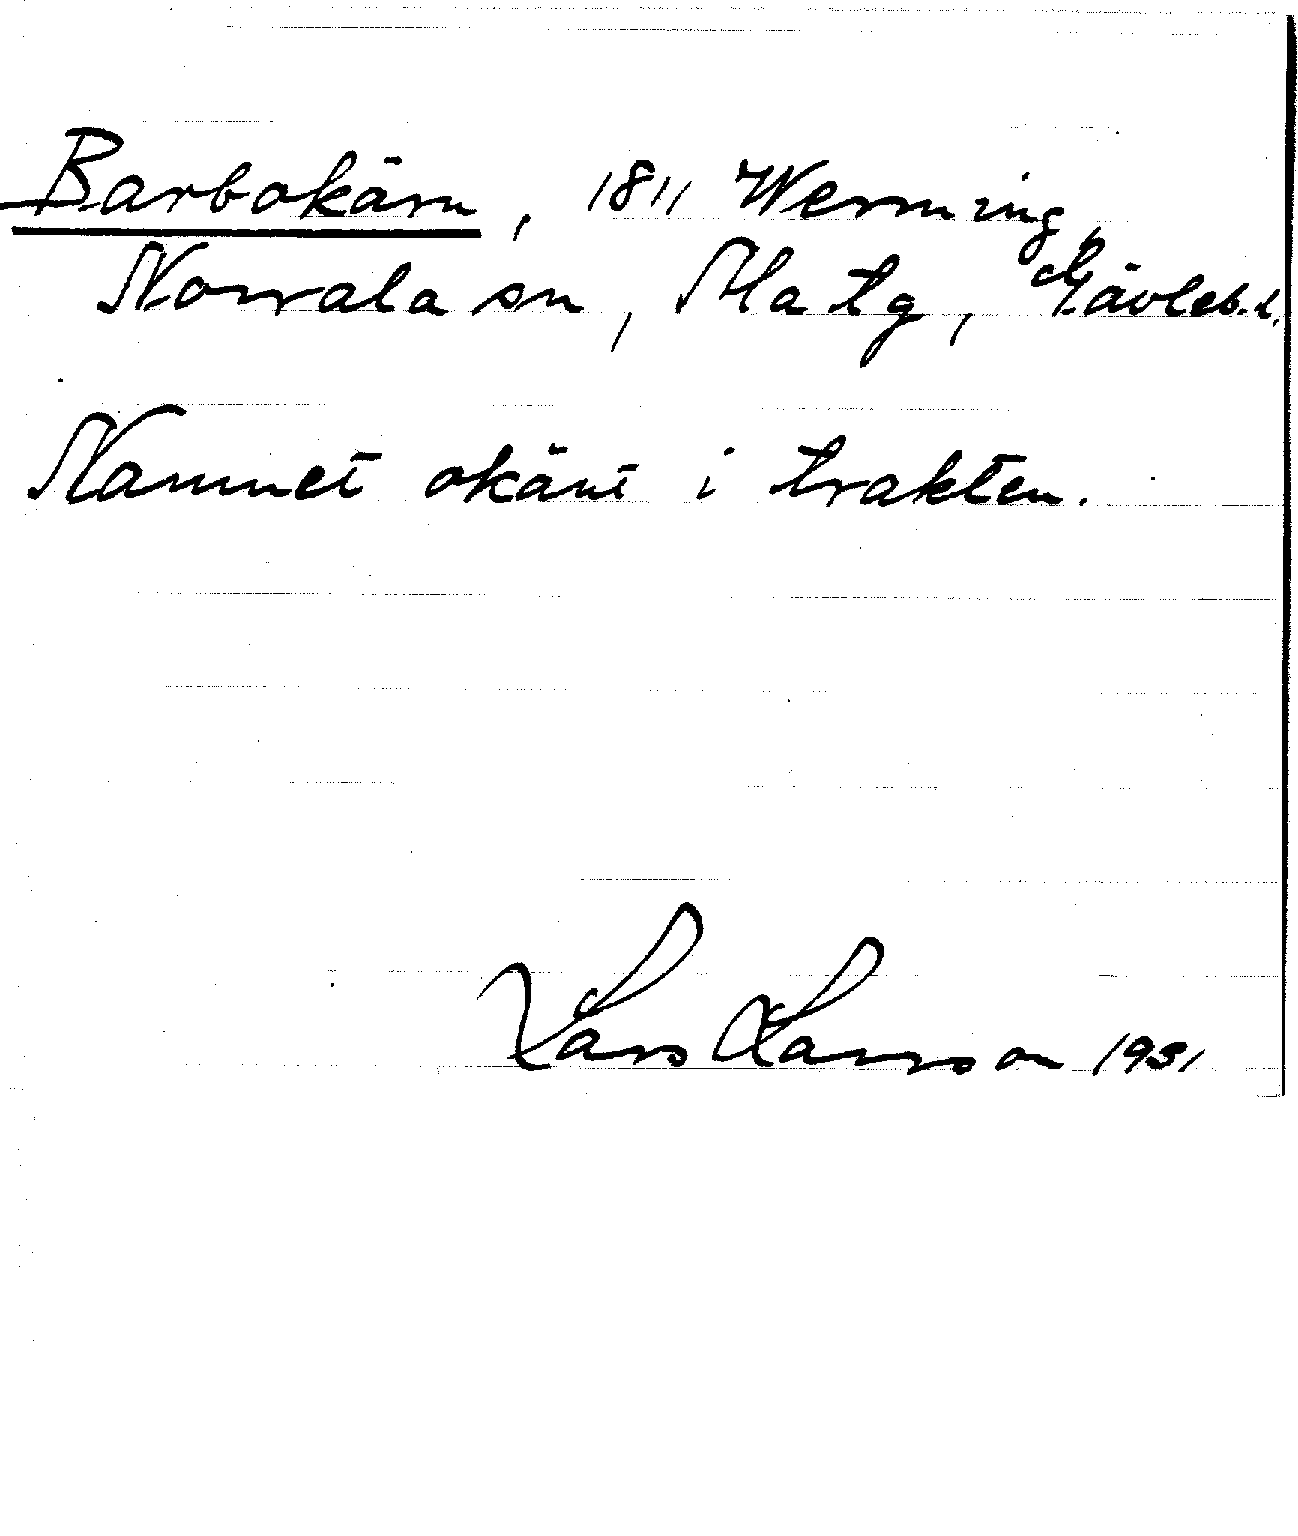 Barbokärn, 1811 Werming,
Norrala sn, Ala tg, Gävleb.l.
Namnet okänt i trakten.
Lars Larsson 1931